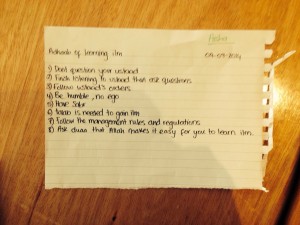 Asha
Adaab of learning ilm
02-09-2024
1) Dont question your ustaad
2) Finish listening to ustaad then ask questions.
3) Follow ustaad's orders
4) Be humble, no ego
5) Have Sabr
6) Talab is needed to gain ilm
7) Follow the management rules and regulations
8) Ask duaa that Allah makes it easy for you to learn ilm.